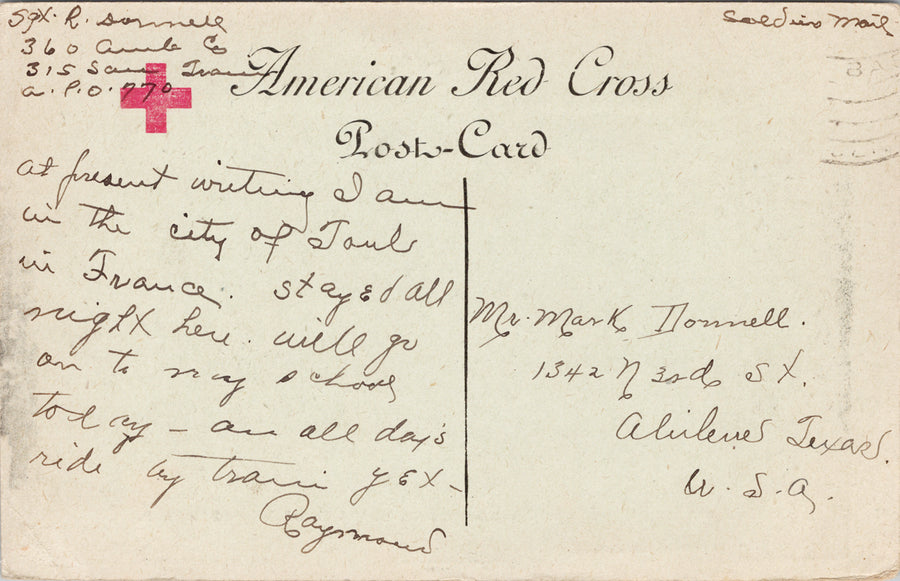 Sgt. R. Donnell
Soldiers Mail
360 Amb Co
315 San. Train
A.P.O. 770
American Red Cross
Post-Card
at present writing I am
in the city of Toul
in France. stayed all
night here. will go
on to my school
today - an all day's
ride by train yet -
Raymond
Mr. Mark Donnell.
1342 N 3rd St.
Abilene Texas.
U.S.A.